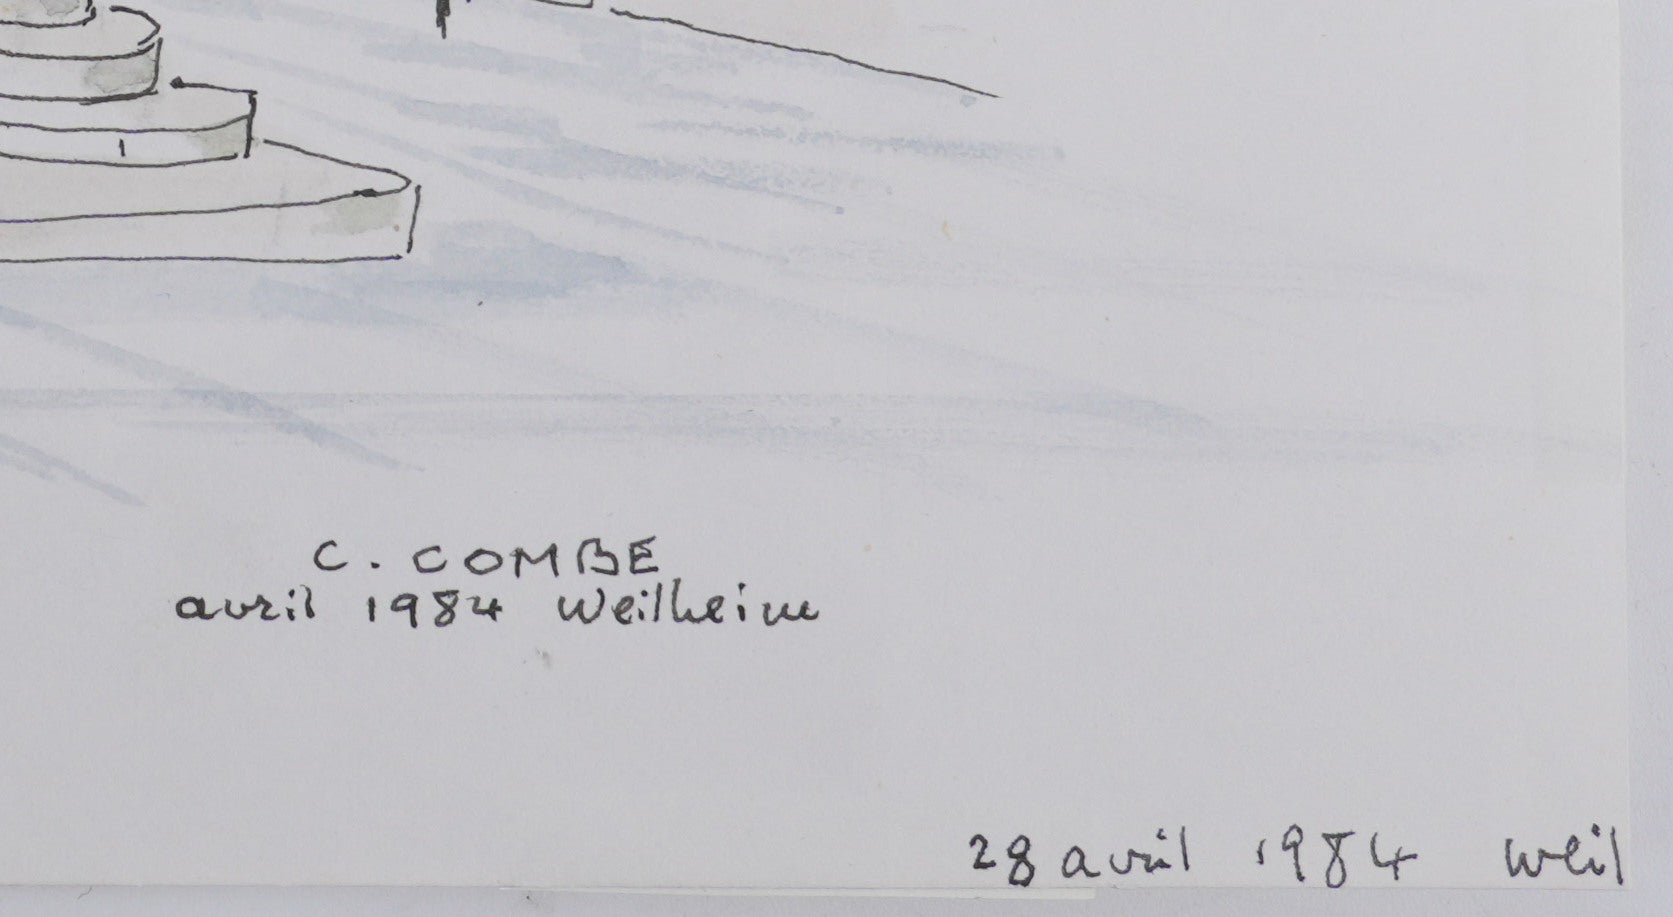 C. COMBE
avril 1984 Weilheim
28 avril 1984 Weil